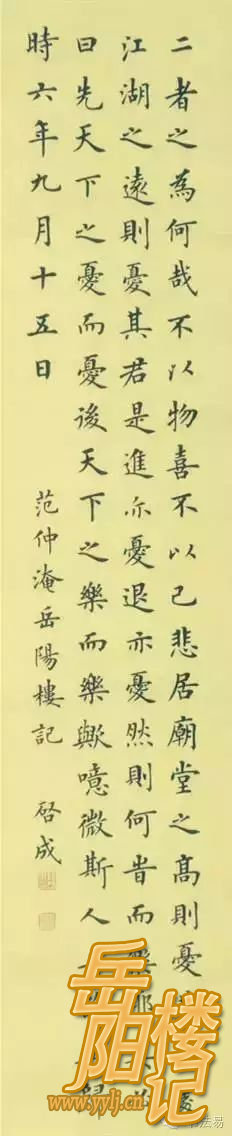 二者之為何哉不以物喜不以己悲居廟堂之高則憂
江湖之遠則憂其君是進亦憂退亦憂然則何旹而樂耶
曰先天下之憂而憂後天下之樂而樂歟噫微斯人
時六年九月十五日
范仲淹岳陽樓記
啓成
岳阳楼记
www.yylj.cn
书法易